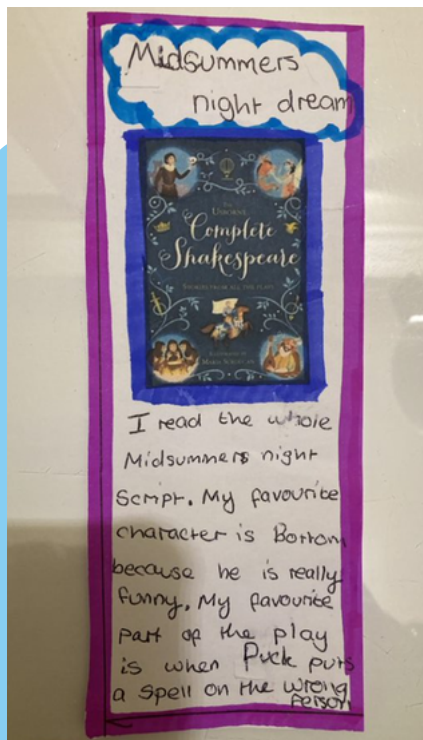 Midsummers
night dream
THE
USBORNE
Complete
Shakespeare
STORIES FROM ALL THE PLAYS
ILLUSTRATED BY
I read the whole
Midsummers night
Script. My favourite
character is Bottom
because he is really
funny. My favourite
part of the play
is when Puck puts
a spell on the wrong
Person